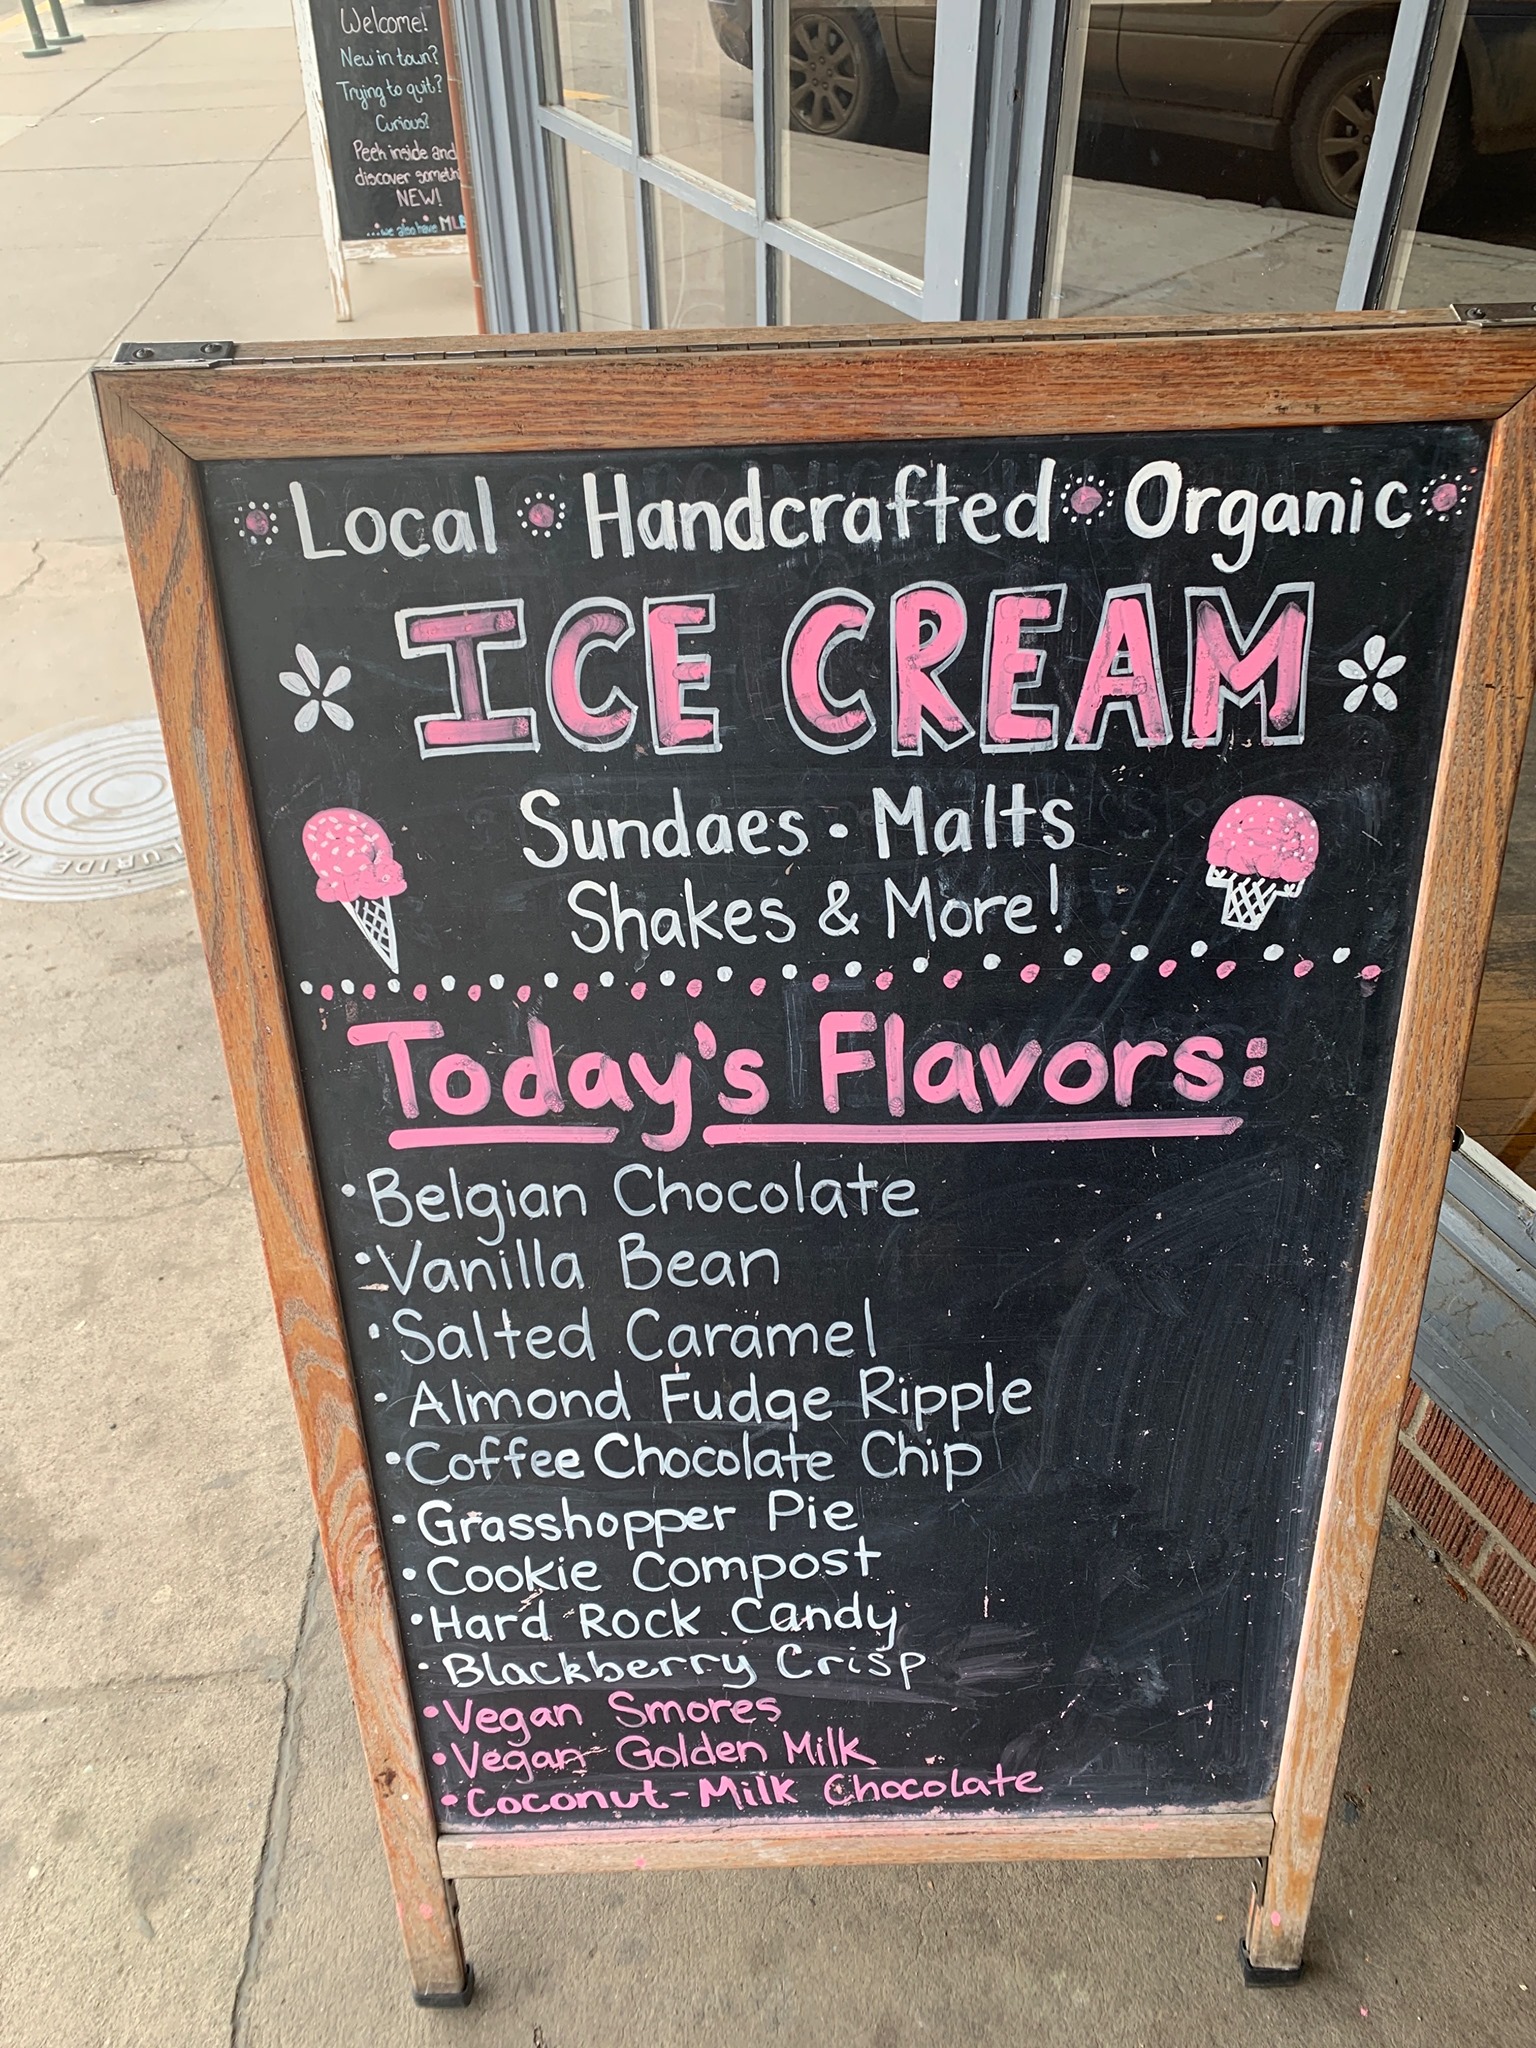 Welcome!
New in town?
Trying to quit?
Curious?
Peek inside and
discover someth
NEW!
...we also have MLB
Local Handcrafted Organic
ICE CREAM
Sundaes • Malts
Shakes & More!
Today's Flavors:
• Belgian Chocolate
• Vanilla Bean
• Salted Caramel
• Almond Fudge Ripple
• Coffee Chocolate Chip
• Grasshopper Pie
• Cookie Compost
• Hard Rock Candy
• Blackberry Crisp
• Vegan Smores
• Vegan Golden Milk
• Coconut-Milk Chocolate